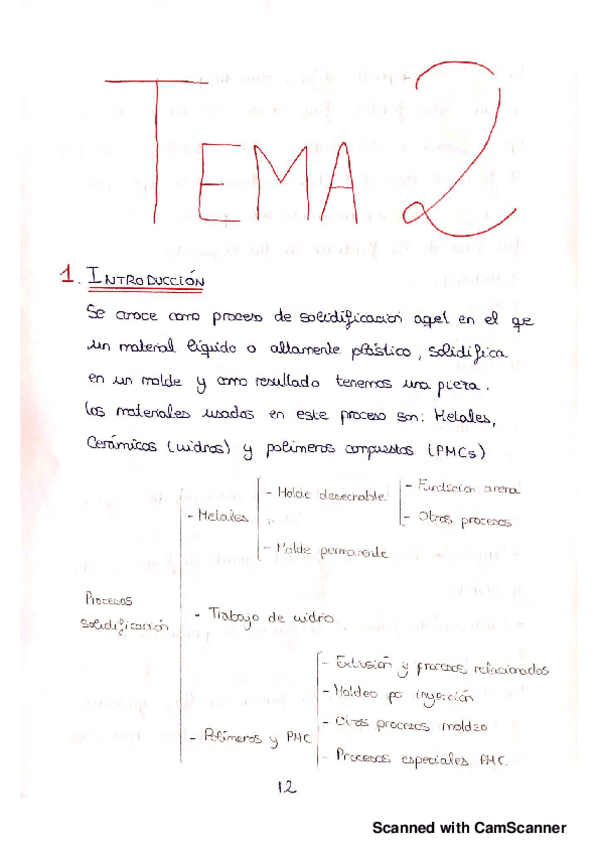 TEMA 2
1. INTRODUCCIÓN
Se conoce como proceso de solidificación aqel en el qe
un material líquido o altamente plástico, solidifica
en un molde y como resultado tenemos una pieza.
Los materiales usados en este proceso son: Metales,
Cerámicos (vidros) y polímeros compuestos (PMCs)
- Molde desechable
- Fundición arena
- Metales
- Otros procesos
- Molde permanente
Procesos
solidificación
- Trabajo de vidrio
- Extrusión y procesos relacionados
- Moldeo por inyección
- Otros procesos moldeo
- Polímeros y PMC
- Procesos especiales PMC.
12
Scanned with CamScanner